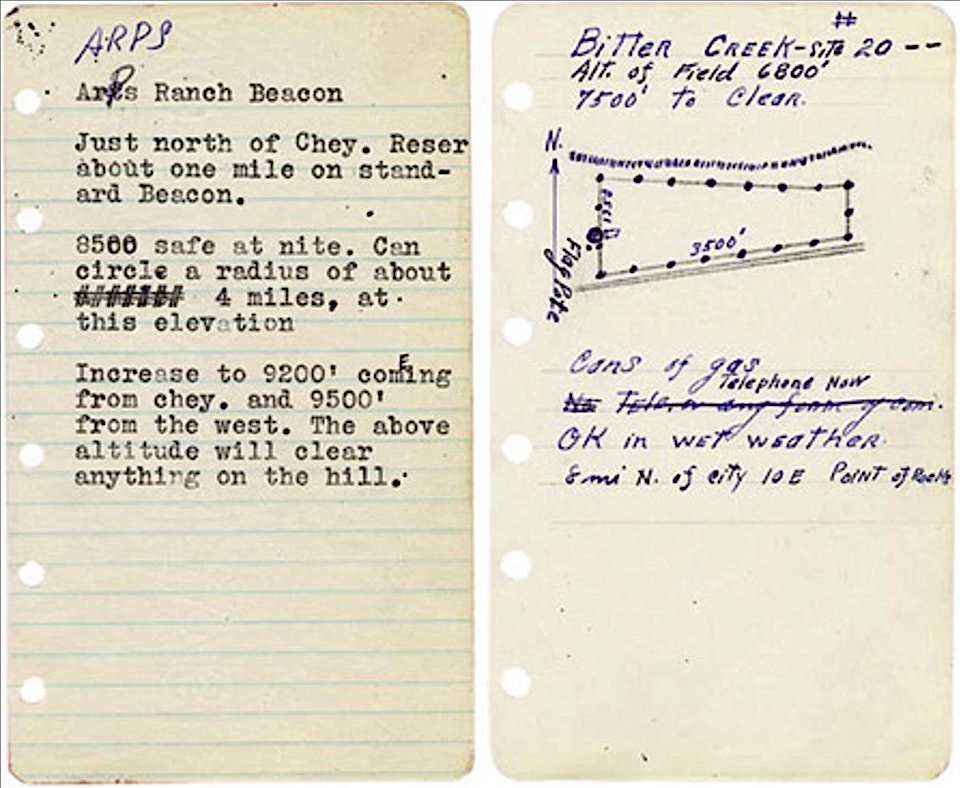 ARPS
Arps Ranch Beacon
Just north of Chey. Reser
about one mile on stand-
ard Beacon.
8500 safe at nite. Can
circle a radius of about
4 miles, at
this elevation
Increase to 9200' comEing
from chey. and 9500'
from the west. The above
altitude will clear
anything on the hill.
#
BITTER CREEK-SITE 20 --
Alt. of Field 6800'
7500' To Clear.
N.
3500'
Flag Pole
Cans of gas
Telephone Now
No Tele. or any form of com.
OK in WET WEATHER.
8 mi N. of city 10 E Point of Rocks